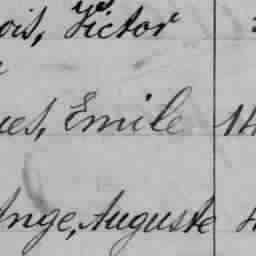 ois, Victor
ues, Emile 14
Ange, Auguste